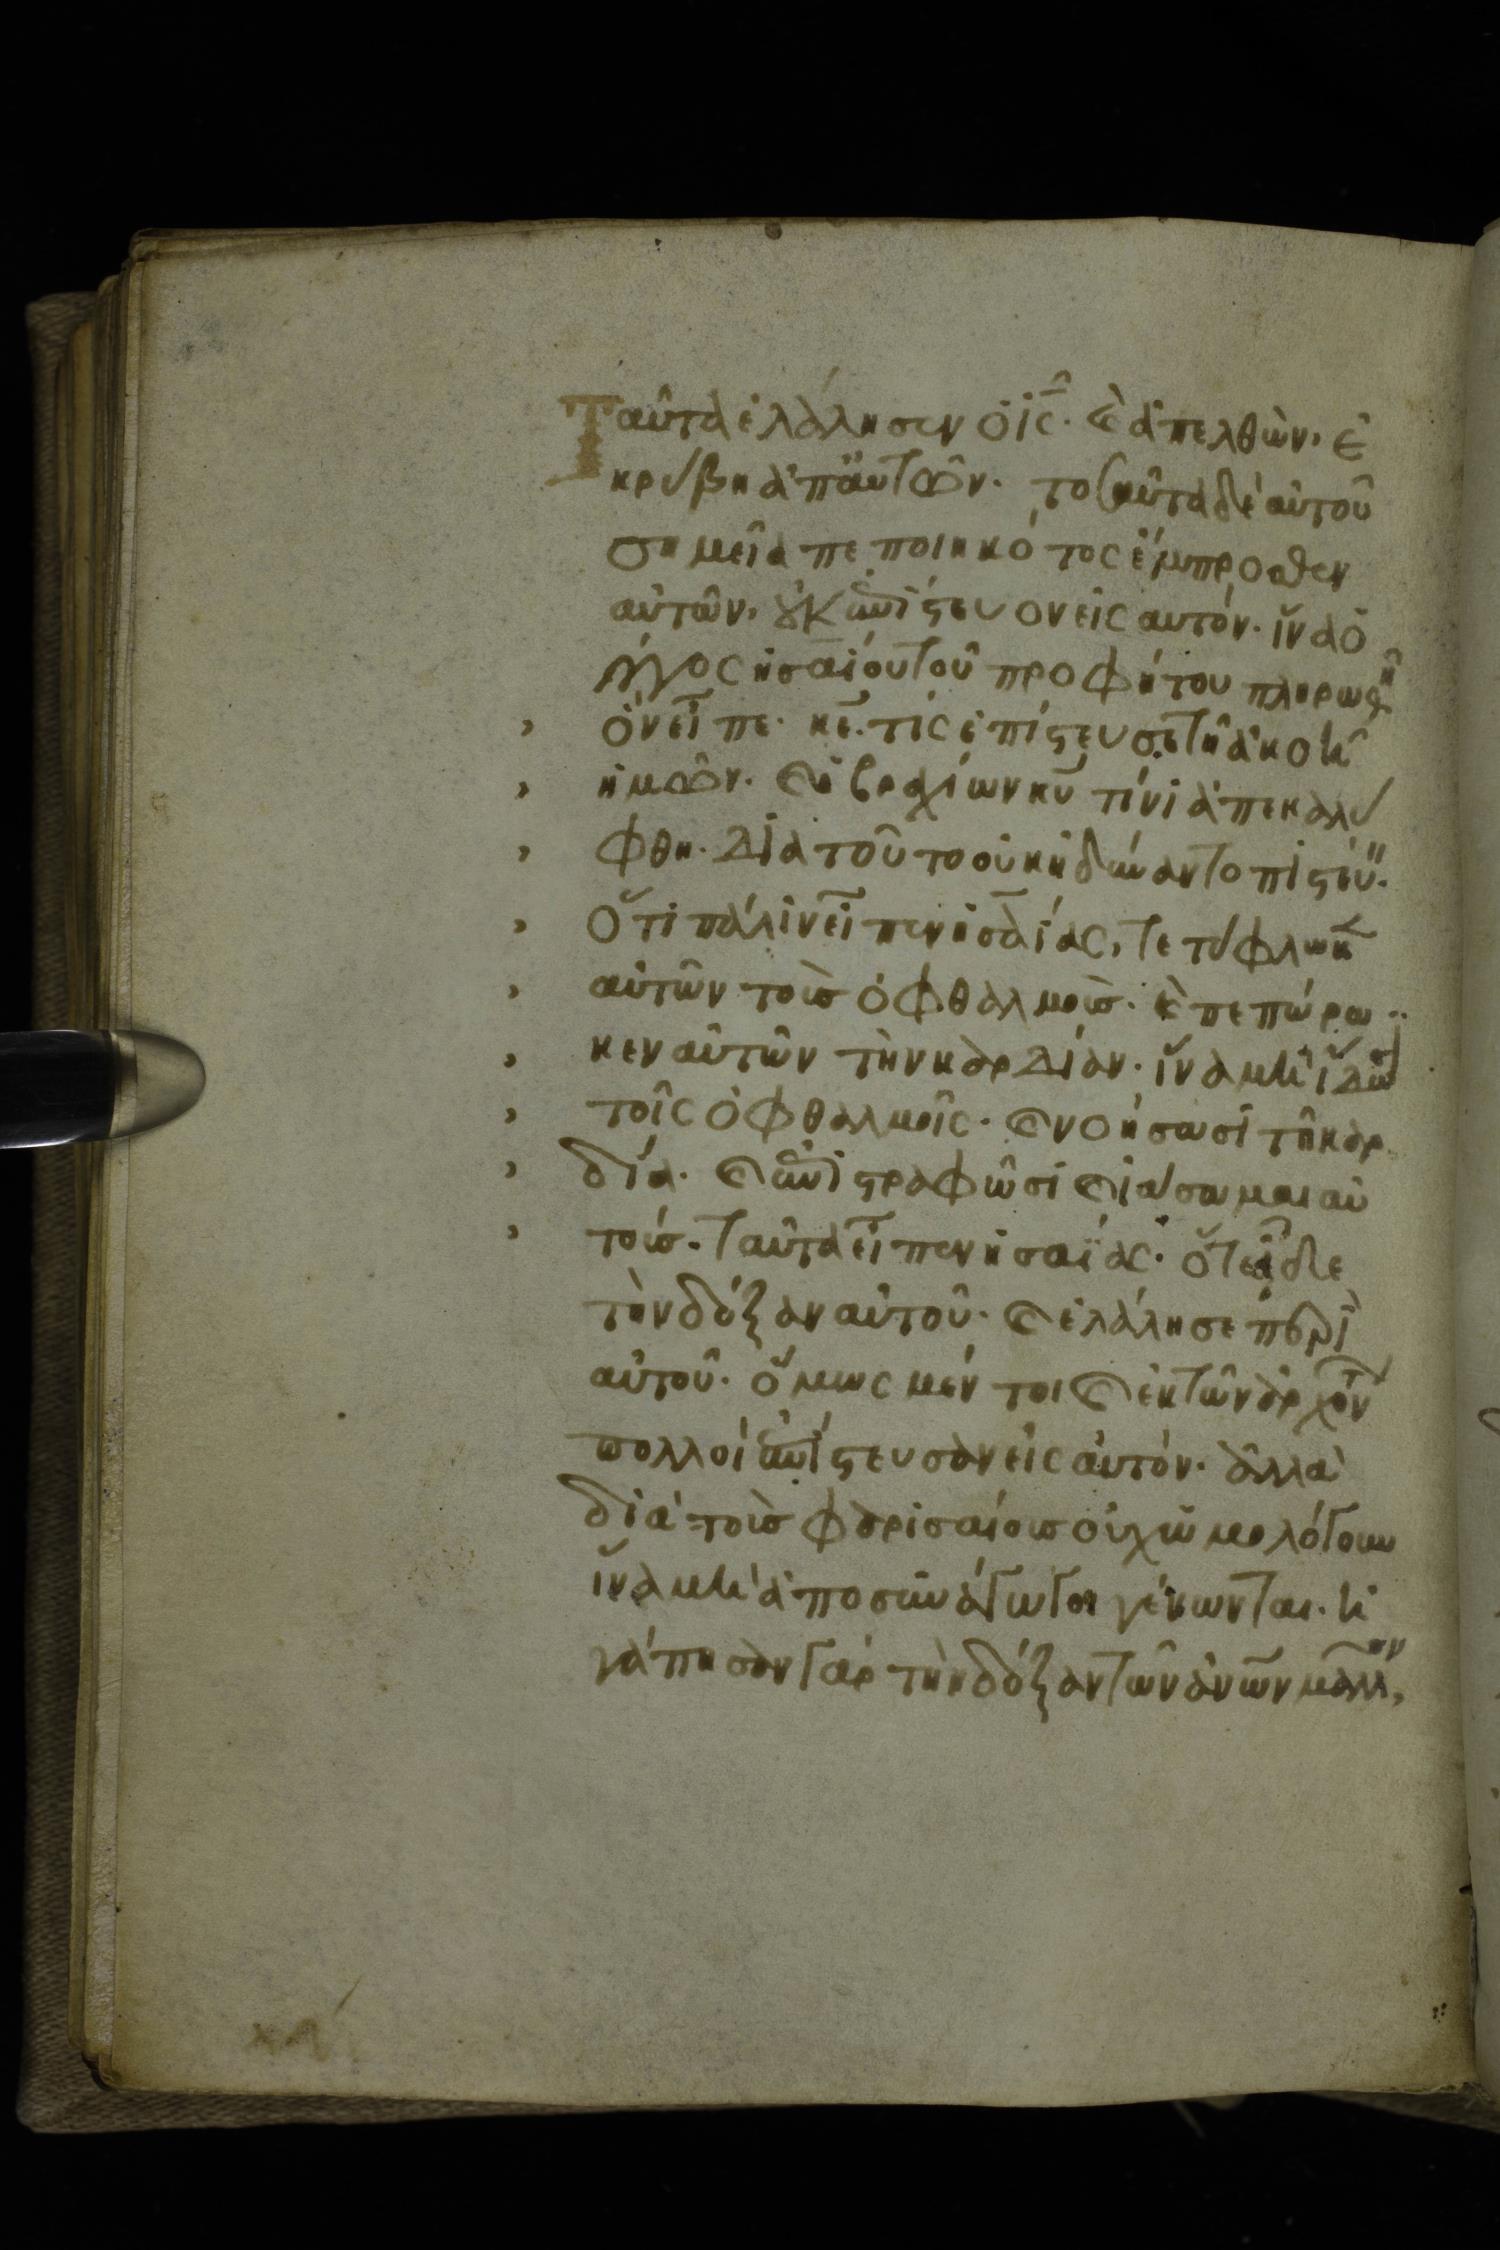 Ταῦτα ἐλάλησεν ὁ ις̅· καὶ ἀπελθὼν, ἐ
κρύβη ἀπ αὐτῶν. τοσαῦτα δὲ αὐτοῦ
σημεῖα πεποιηκότος ἔμπροσθεν
αὐτῶν, οὐκ ἐπίστευον εἰς αυτόν. ἵνα ὁ
λόγος ἠσαΐου τοῦ προφήτου πληρωθῆ
ὃν εἶπε· κε̅. τίς ἐπίστευσε τῆ ἀκοῆ
ἡμῶν. καὶ ὁ βραχίων κυ̅ τίνι ἀπεκαλύ
φθη. Διὰ τοῦτο οὐκ ἠδύναντο πιστεύειν.
ὅτι πάλιν εἶπεν ἠσαΐας, τετύφλωκεν
αὐτῶν τοὺς ὀφθαλμοὺς. καὶ πεπώρω
κεν αὐτῶν τὴν καρδίαν. ἵνα μὴ ἴδωσι
τοῖς ὀφθαλμοῖς. καὶ νοήσωσι τῆ καρ
δία. καὶ ἐπιστραφῶσι καὶ ἰάσωμαι αὐ
τούς. ταῦτα εἶπεν ἠσαΐας. ὅτε εἶδε
τὴν δόξαν αὐτοῦ. καὶ ἐλάλησε περὶ
αὐτοῦ. ὅμως μέν τοι καὶ ἐκ τῶν ἀρχόντων
πολλοὶ ἐπίστευσαν εἰς αὐτόν. ἀλλὰ
διὰ τοὺς φαρισαίους οὐχ ὡμολόγουν
ἵνα μὴ ἀποσυνάγωγοι γένωνται. ἠ
γάπησαν γὰρ τὴν δόξαν τῶν ἀνω̅ν μᾶλλον